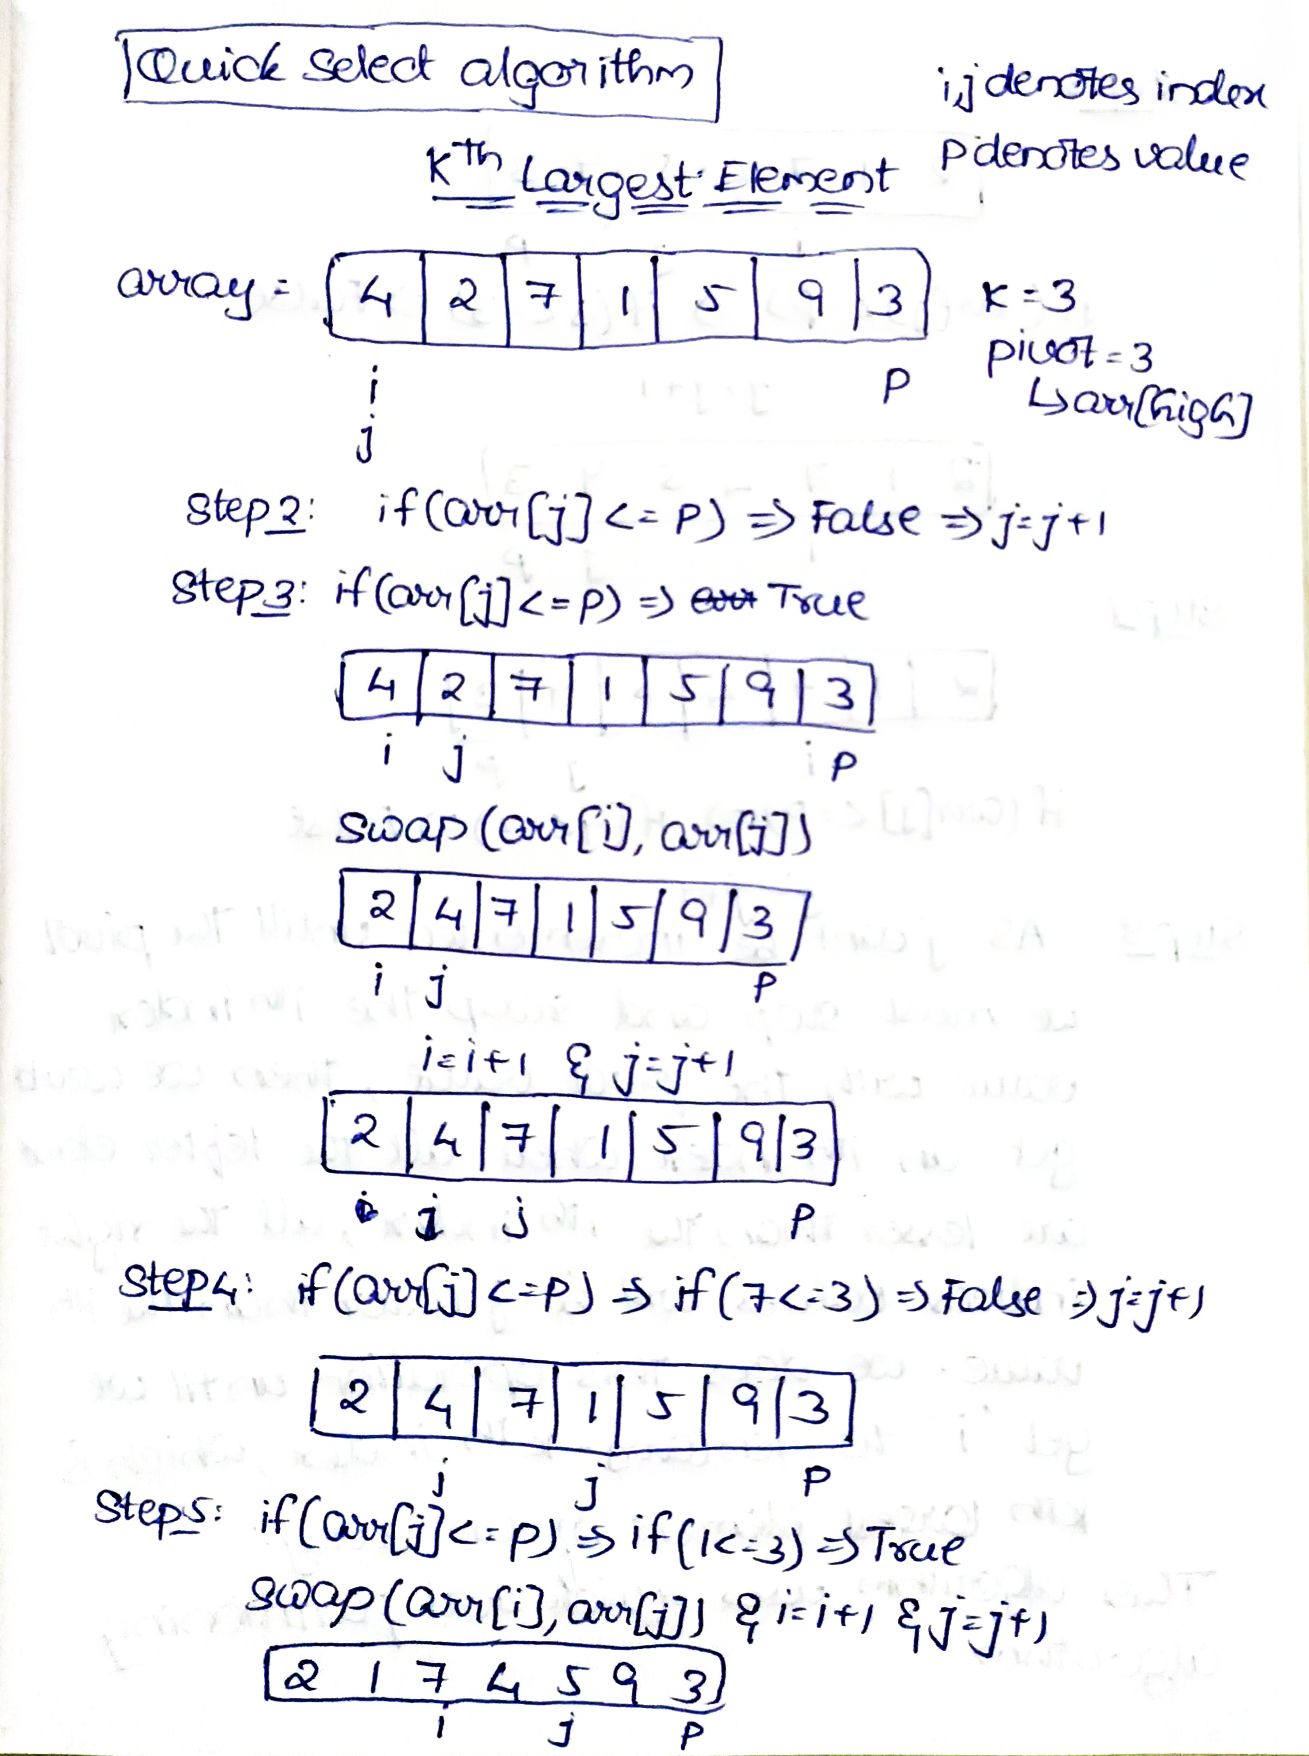 Quick Select algorithm
i,j denotes index
P denotes value
Kth Largest Element
array = 4 2 7 1 5 9 3
K = 3
pivot = 3
↳ arr[high]
i P
j
Step 2: if(arr[j] <= P) => False => j=j+1
Step 3: if(arr[j] <= P) => True
4 2 7 1 5 9 3
i j P
swap (arr[i], arr[j])
2 4 7 1 5 9 3
i j P
i=i+1 & j=j+1
2 4 7 1 5 9 3
i j P
Step 4: if(arr[j] <= P) => if(7<=3) => False => j=j+1
2 4 7 1 5 9 3
i j P
Step 5: if(arr[j] <= P) => if(1<=3) => True
swap(arr[i], arr[j]) & i=i+1 & j=j+1
2 1 7 4 5 9 3
i j P